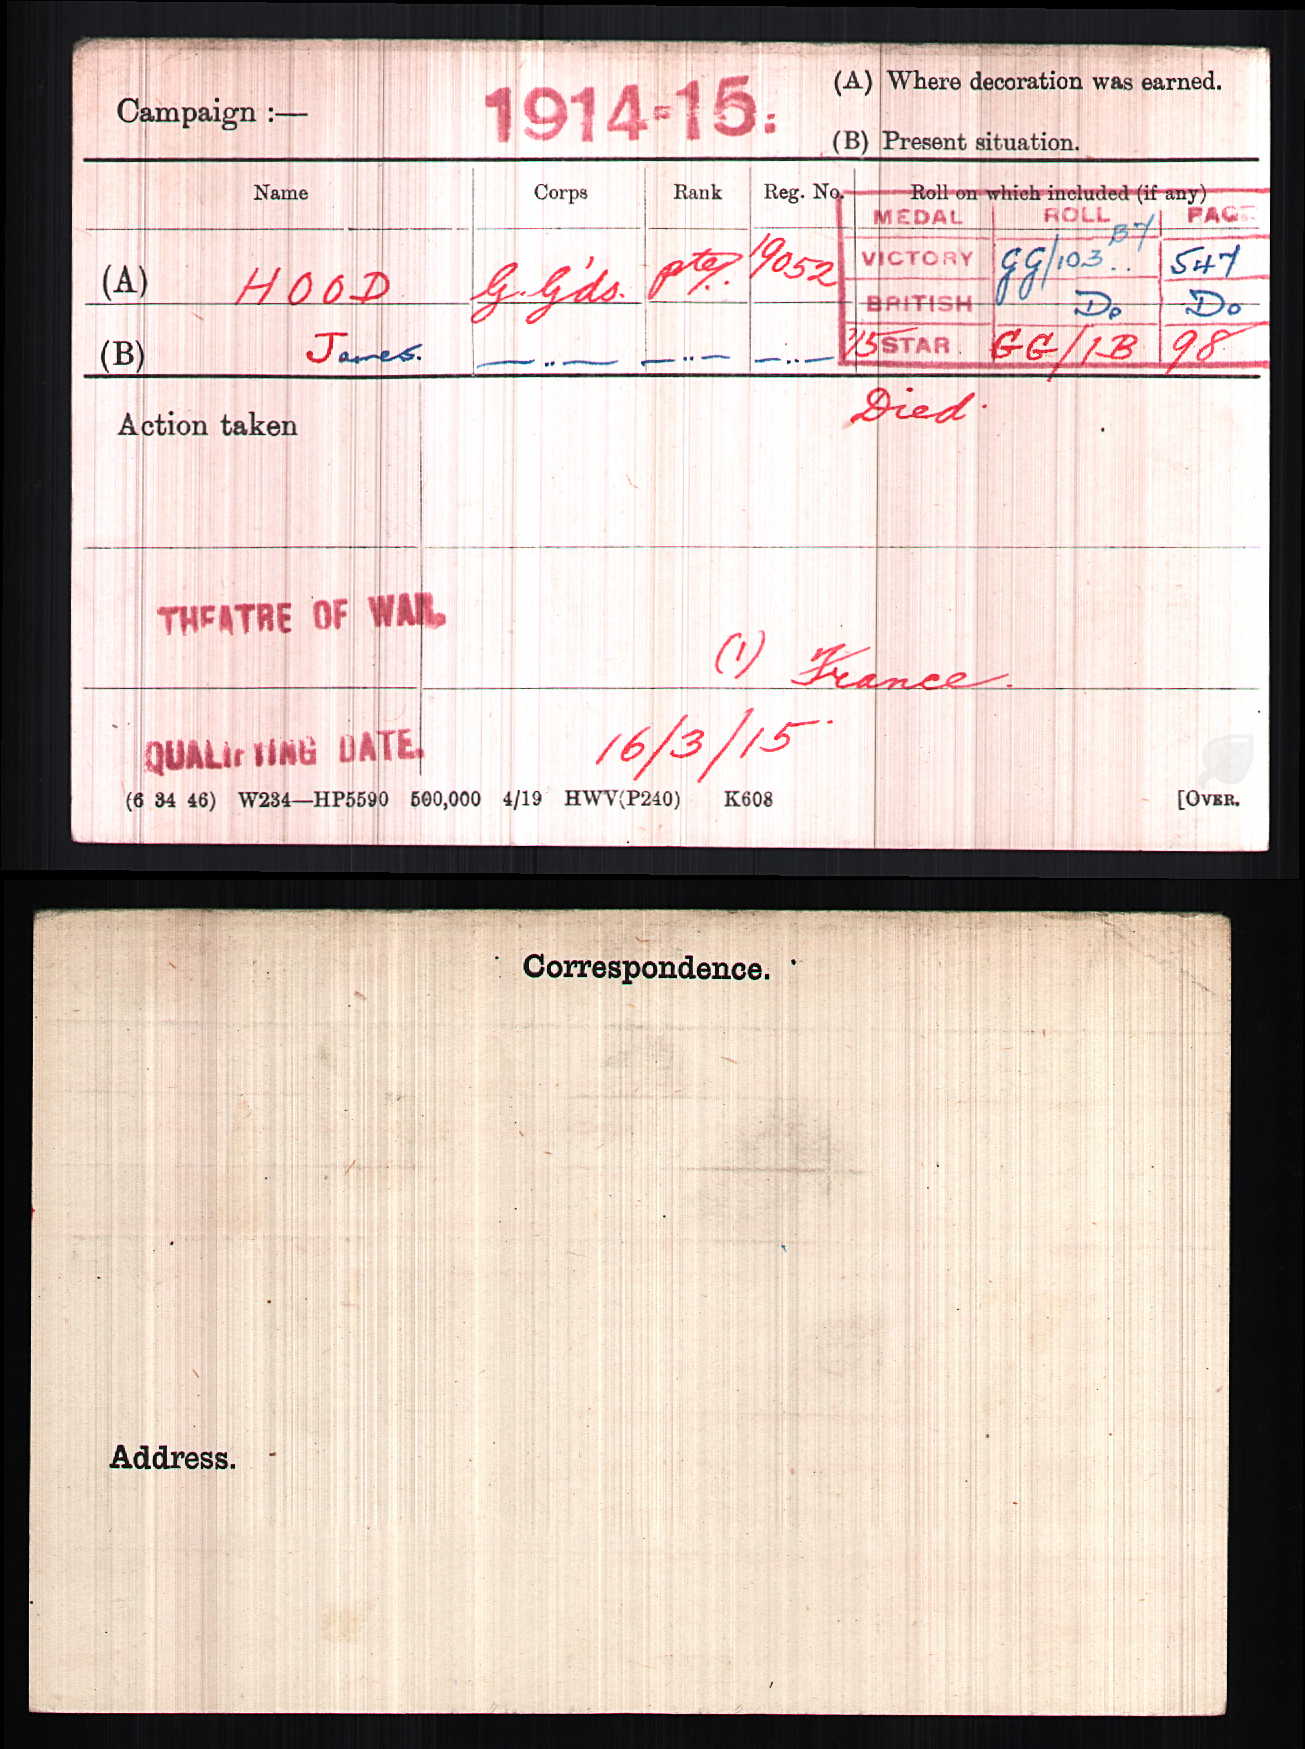 Campaign :— 1914-15. (A) Where decoration was earned.
(B) Present situation.
Name Corps Rank Reg. No. Roll on which included (if any)
MEDAL ROLL PAGE
(A) HOOD G. G'ds. pte. 19052 VICTORY GG/103 B7 547
BRITISH Do Do
(B) James. —„— —„— —„— '15 STAR GG/1B 98
Action taken Died.
THEATRE OF WAR. (1) France.
QUALIFYING DATE. 16/3/15
(6 34 46) W234—HP5590 500,000 4/19 HWV(P240) K608 [OVER.
Correspondence.
Address.